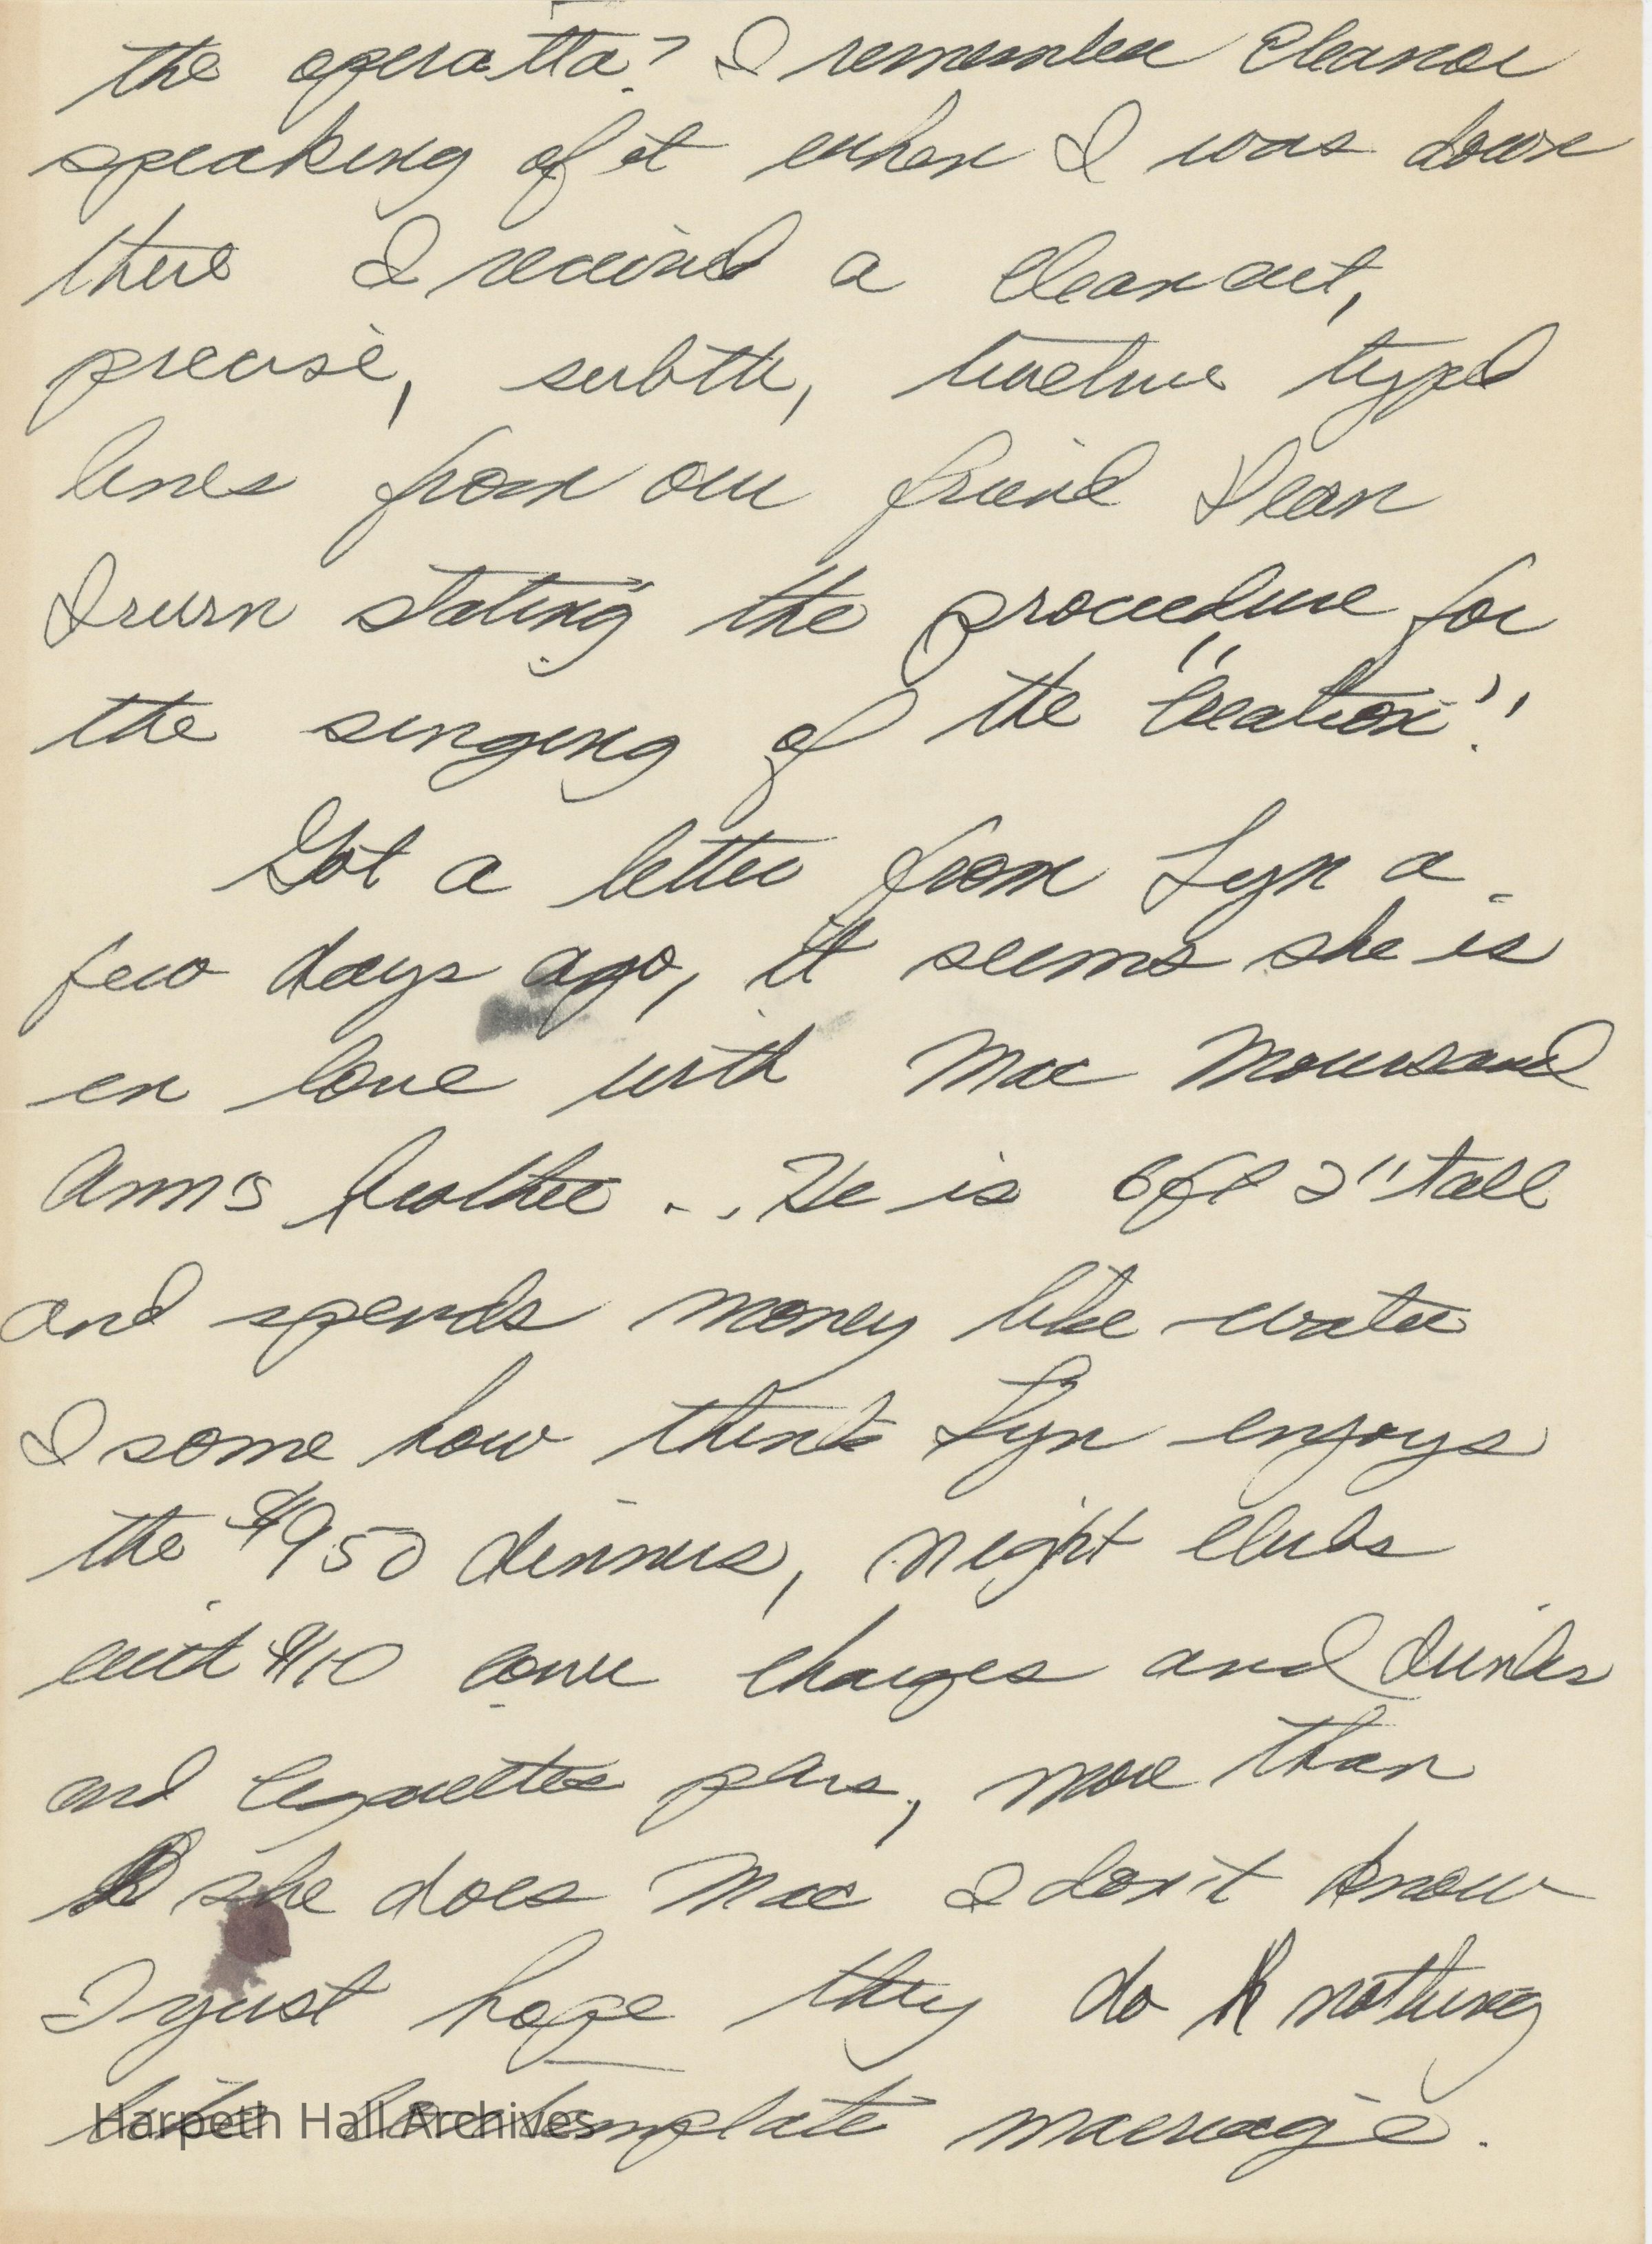 the operatta? I remember Eleanor
speaking of it when I was down
there I received a clean cut,
precise, subtle, twelve typed
lines from our friend Dean
Irwin stating the proceedure for
the singing of the "Creation".
Got a letter from Lyn a
few days ago, it seems she is
in love with Mac
Ann's brother... He is 6ft 2" tall
and spends money like water
I some how think Lyn enjoys
the $950 dinners, night clubs
with $10 cover charges and drinks
and cigarettes plus, more than
she does Mac I don't know
I just hope they do nothing
like contemplate marriage.
Harpeth Hall Archives